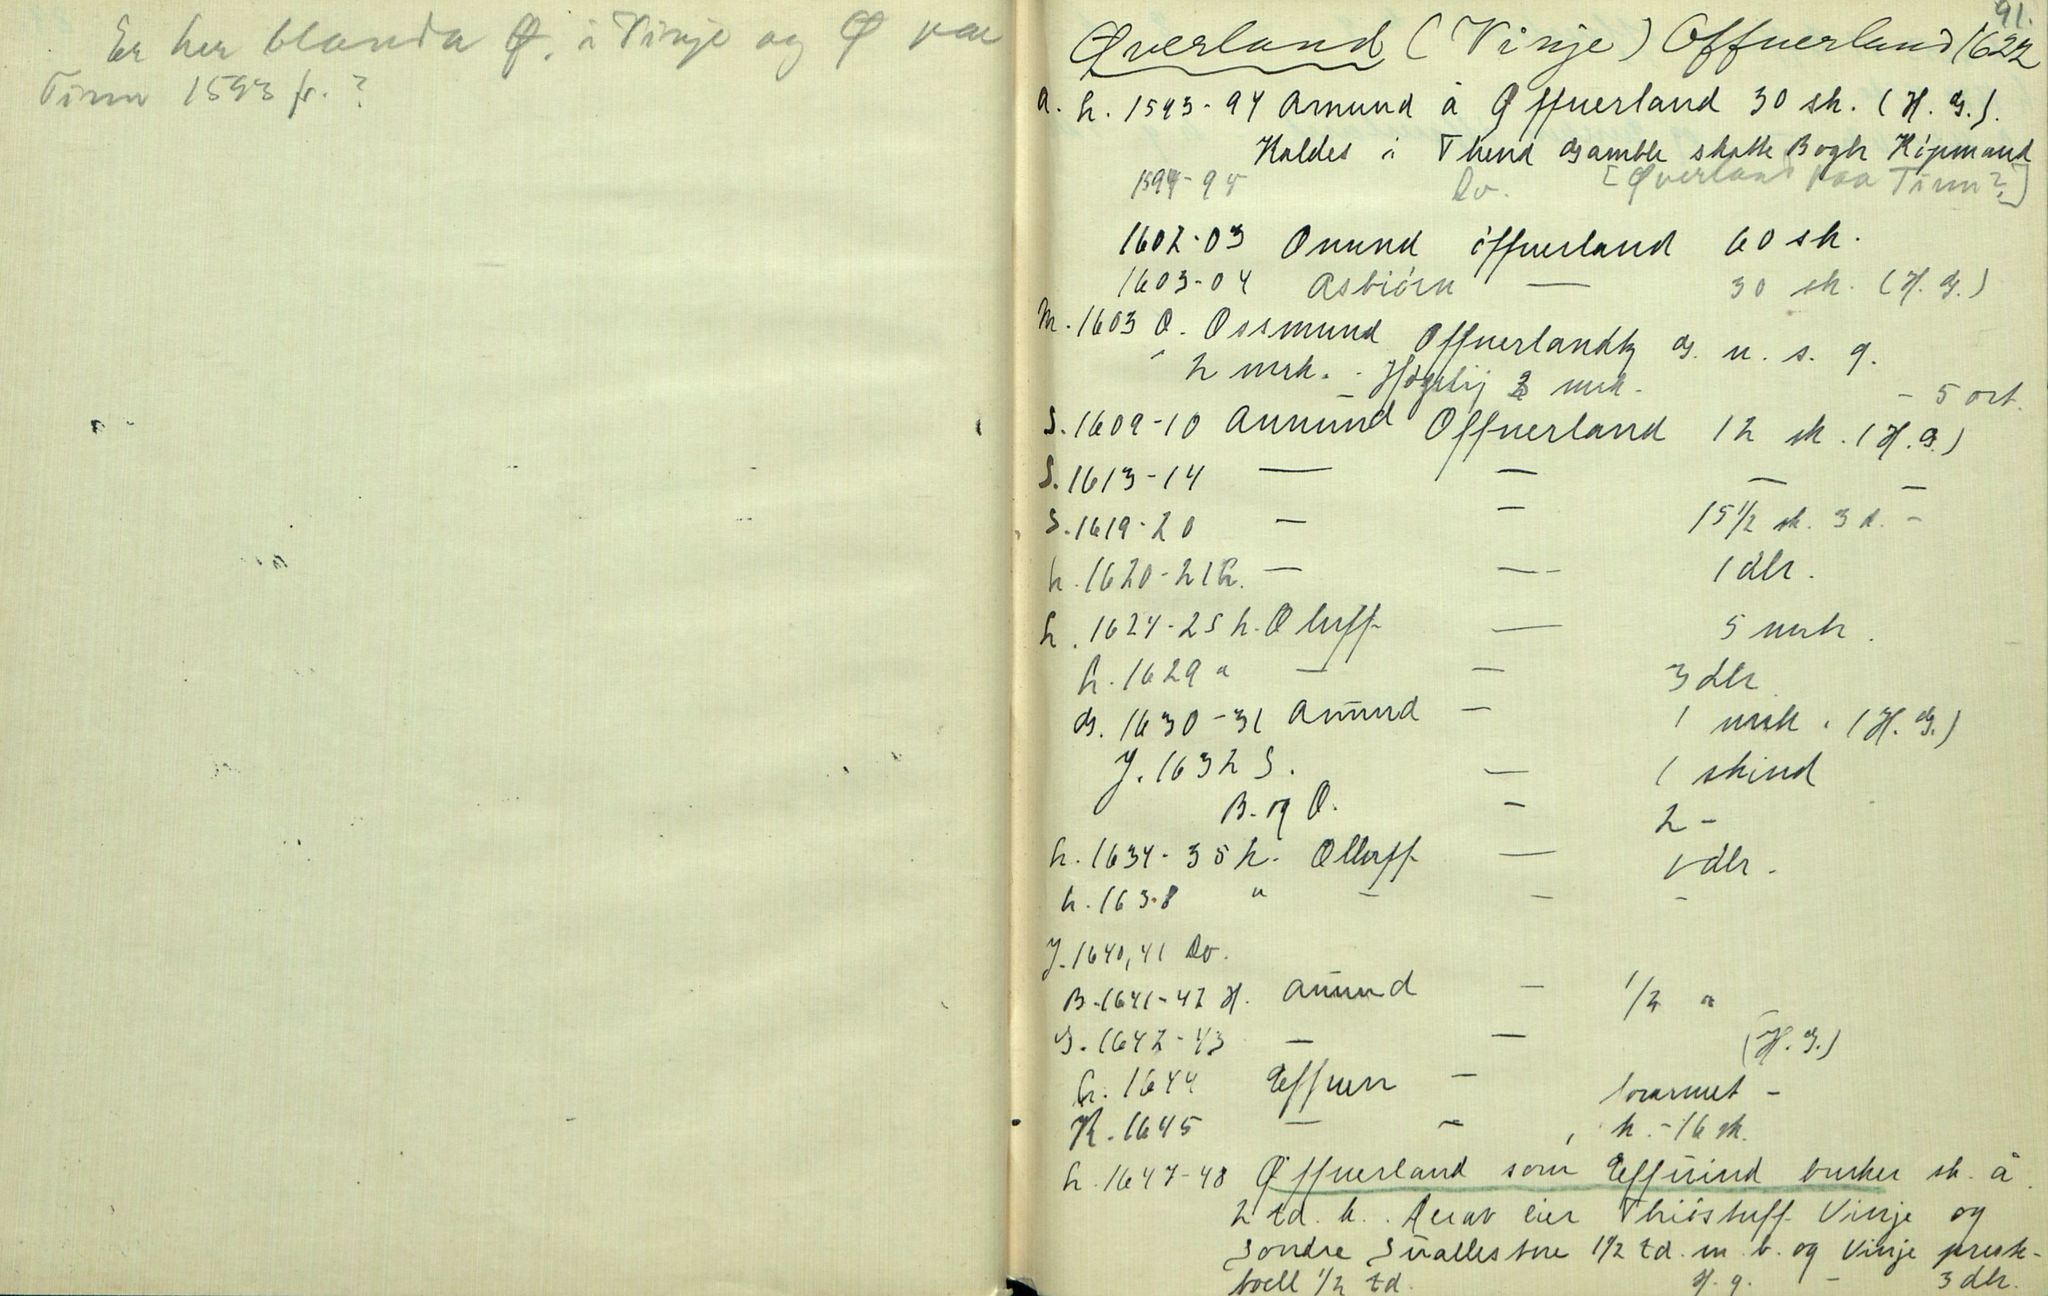 Er her blanda Ø. i Vinje og Ø paa
Tinn 1593 fr. ?
91.
Øverland (Vinje) Offuerland 1622
a. h. 1593-94 Amund å Øffuerland 30 sk. (H. G.).
Kaldes i Thend Gamble skatte Bogh
1594-95 Do. [Øverland paa Tinn?]
1602-03 Onund öffuerland 60 sk.
1603-04 Asbiörn — 30 sk. (H. G.)
m. 1603 O. Ossmund Offuerlandh G. u. s. g.
2 mrk. - 3 mrk. - 5 ort.
S. 1609-10 Anund Offuerland 12 sk. (H. G.)
S. 1613-14 — — — —
S. 1619-20 — — 15 1/2 sk. 3 d. -
h. 1620-21 — — 1 dlr.
h. 1624-25 h. Oluff — 5 mrk.
h. 1629 " — — 3 dlr.
G. 1630-31 Anund — 1 mrk. (H. G.)
J. 1632 S. — 1 skind
B. og O. — 2 -
h. 1634-35 h. Olluff — 1 dlr.
h. 1638 " — — -
J. 1640, 41 Do.
B. 1641-42 H. Anund — 1/2 "
S. 1642-43 — — (H. G.)
h. 1644 Effuen —
K. 1645 — — k. - 16 sk.
h. 1647-48 Øffuerland som Effuind bruker sk. å
2 td. k. Derav eier Thiöstuff Vinje og
Sondre 1 1/2 td. m. b. og Vinje prest-
boell 1/2 td. H. g. - 3 dlr.